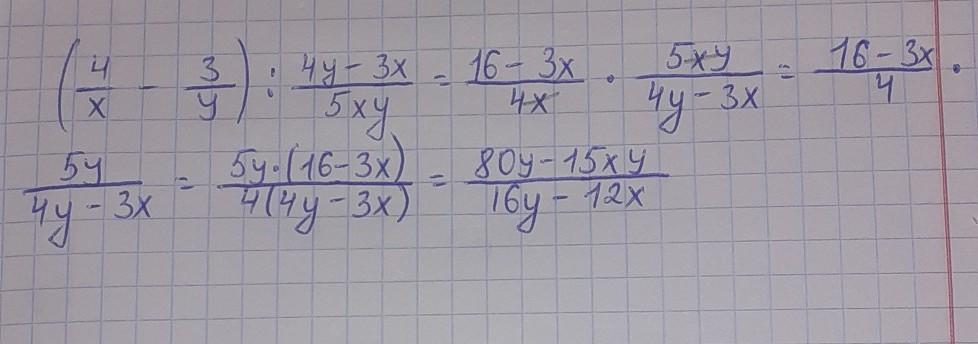 (4/x − 3/y) : (4y − 3x)/(5xy) = (16 − 3x)/(4x) · (5xy)/(4y − 3x) = (16 − 3x)/4 ·
(5y)/(4y − 3x) = (5y·(16 − 3x))/(4(4y − 3x)) = (80y − 15xy)/(16y − 12x)